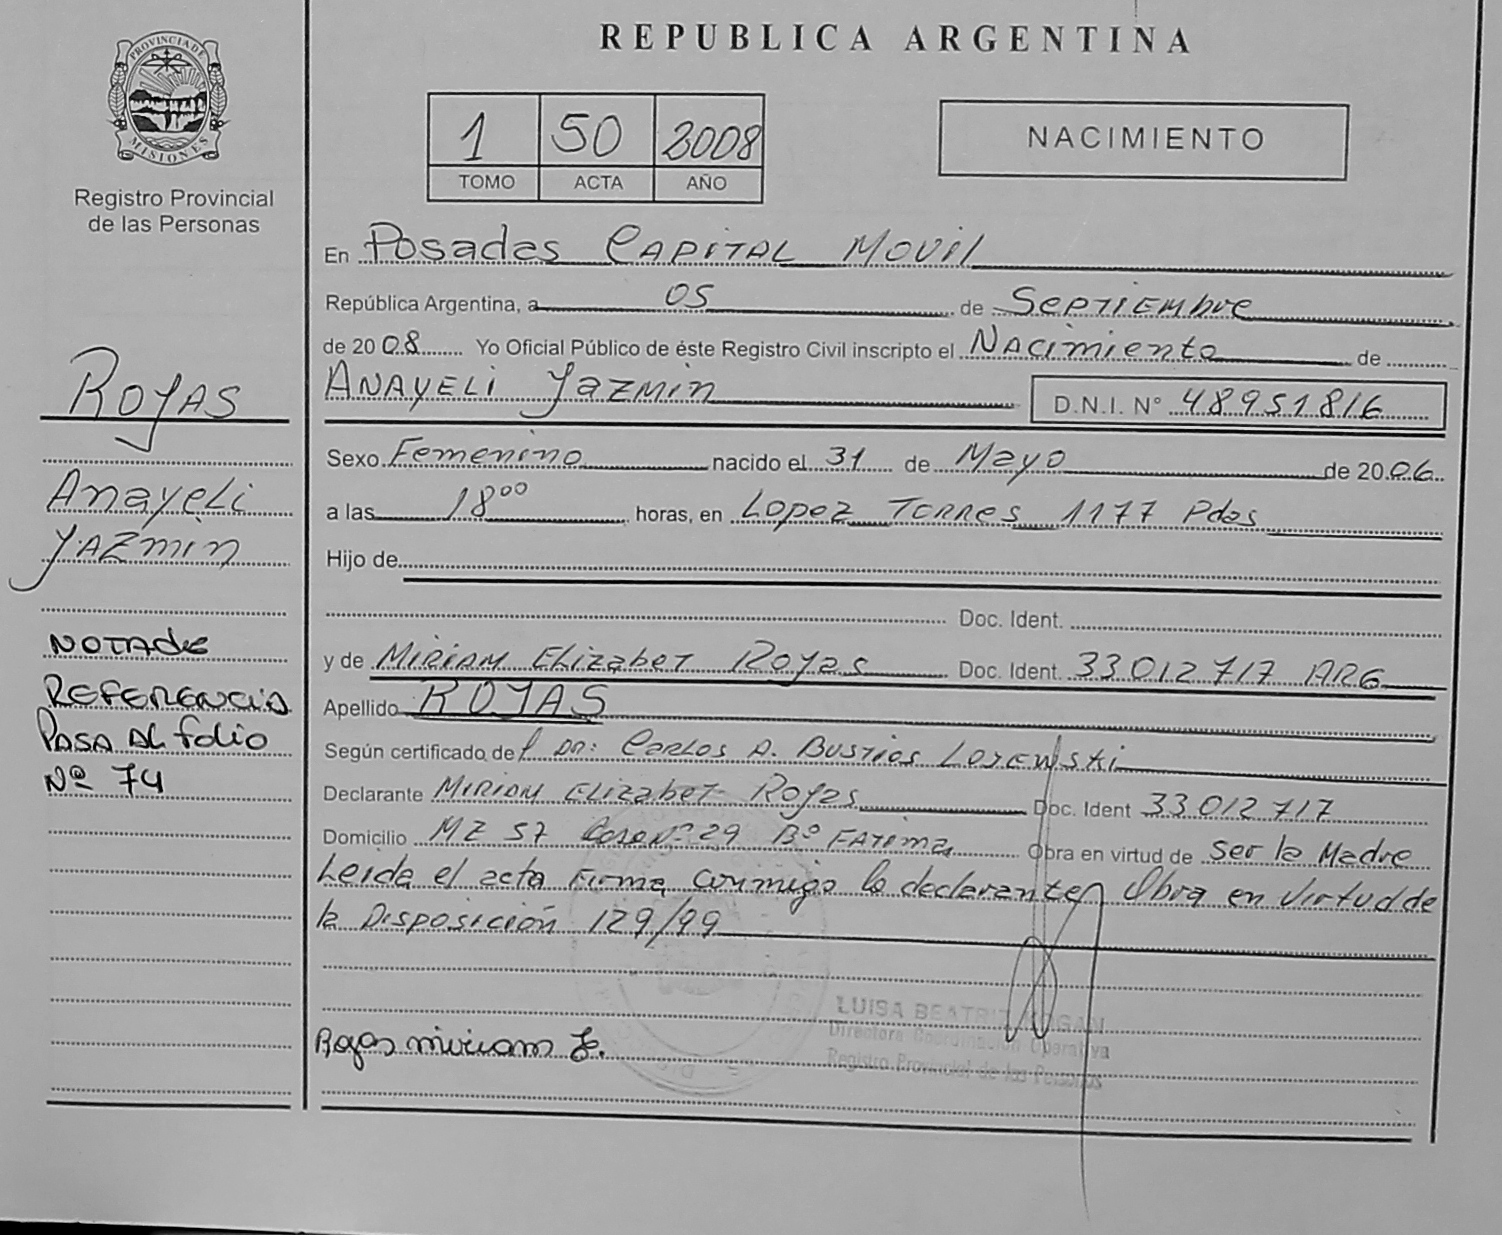 PROVINCIA DE
MISIONES
Registro Provincial
de las Personas
REPUBLICA ARGENTINA
1 50 2008
TOMO ACTA AÑO
NACIMIENTO
En Posadas CAPITAL MOVIL
República Argentina, a 05 de SEPTIEMBRE
de 2008 Yo Oficial Público de éste Registro Civil inscripto el NACIMIENTO de
ANAYELI YAZMIN D.N.I. N° 48951816
Sexo Femenino nacido el 31 de Mayo de 2006
a las 18 00 horas, en Lopez Torres 1177 Pdas
Hijo de
Doc. Ident.
y de MIRIAM ELIZABET Rojas Doc. Ident. 33012717 ARG
Apellido ROJAS
Según certificado de Dr: Carlos A. Bustios
Declarante MIRIAM ELIZABET Rojas Doc. Ident 33012717
Domicilio MZ 57 Casa Nº 29 Bº FATIMA Obra en virtud de ser la Madre
Leida el acta FIRMA conmigo la declarante Obra en virtud de
la Disposición 129/99
LUISA BEATRIZ KOGAN
Directora Coordinación Operativa
Registro Provincial de las Personas
Rojas miriam E.
ROJAS
Anayeli
YAZMIN
NOTA de
REFERENCIA
PASA AL folio
Nº 74